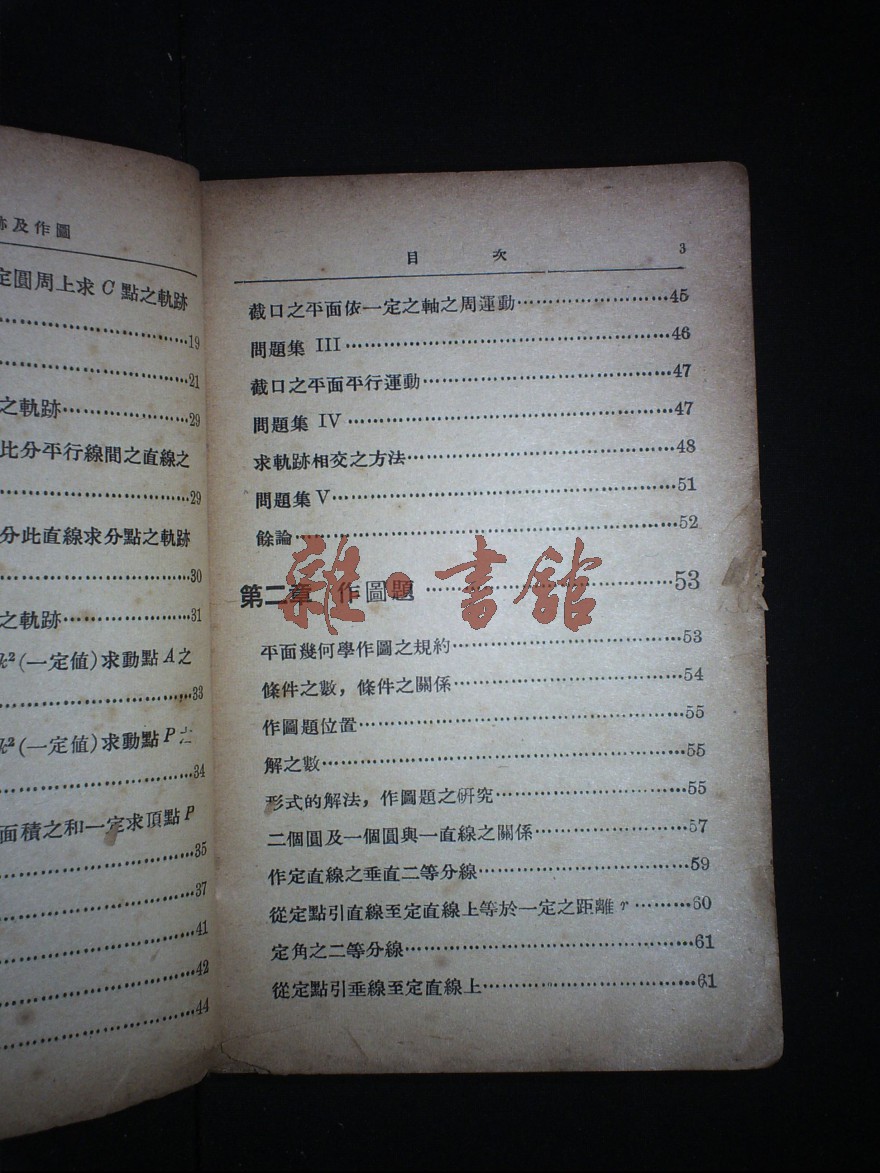 跡及作圖
定圓周上求 C 點之軌跡
……19
……21
之軌跡……29
比分平行線間之直線之
……29
分此直線求分點之軌跡
……30
之軌跡……31
k²(一定値)求動點 A 之
……33
k²(一定値)求動點 P 之
……34
面積之和一定求頂點 P
……35
……37
……41
……42
……44
目 次 3
截口之平面依一定之軸之周運動……45
問題集 III……46
截口之平面平行運動……47
問題集 IV……47
求軌跡相交之方法……48
問題集 V……51
餘論……52
第二章 作圖題……53
平面幾何學作圖之規約……53
條件之數，條件之關係……54
作圖題位置……55
解之數……55
形式的解法，作圖題之研究……55
二個圓及一個圓與一直線之關係……57
作定直線之垂直二等分線……59
從定點引直線至定直線上等於一定之距離 r……60
定角之二等分線……61
從定點引垂線至定直線上……61
雜·書館